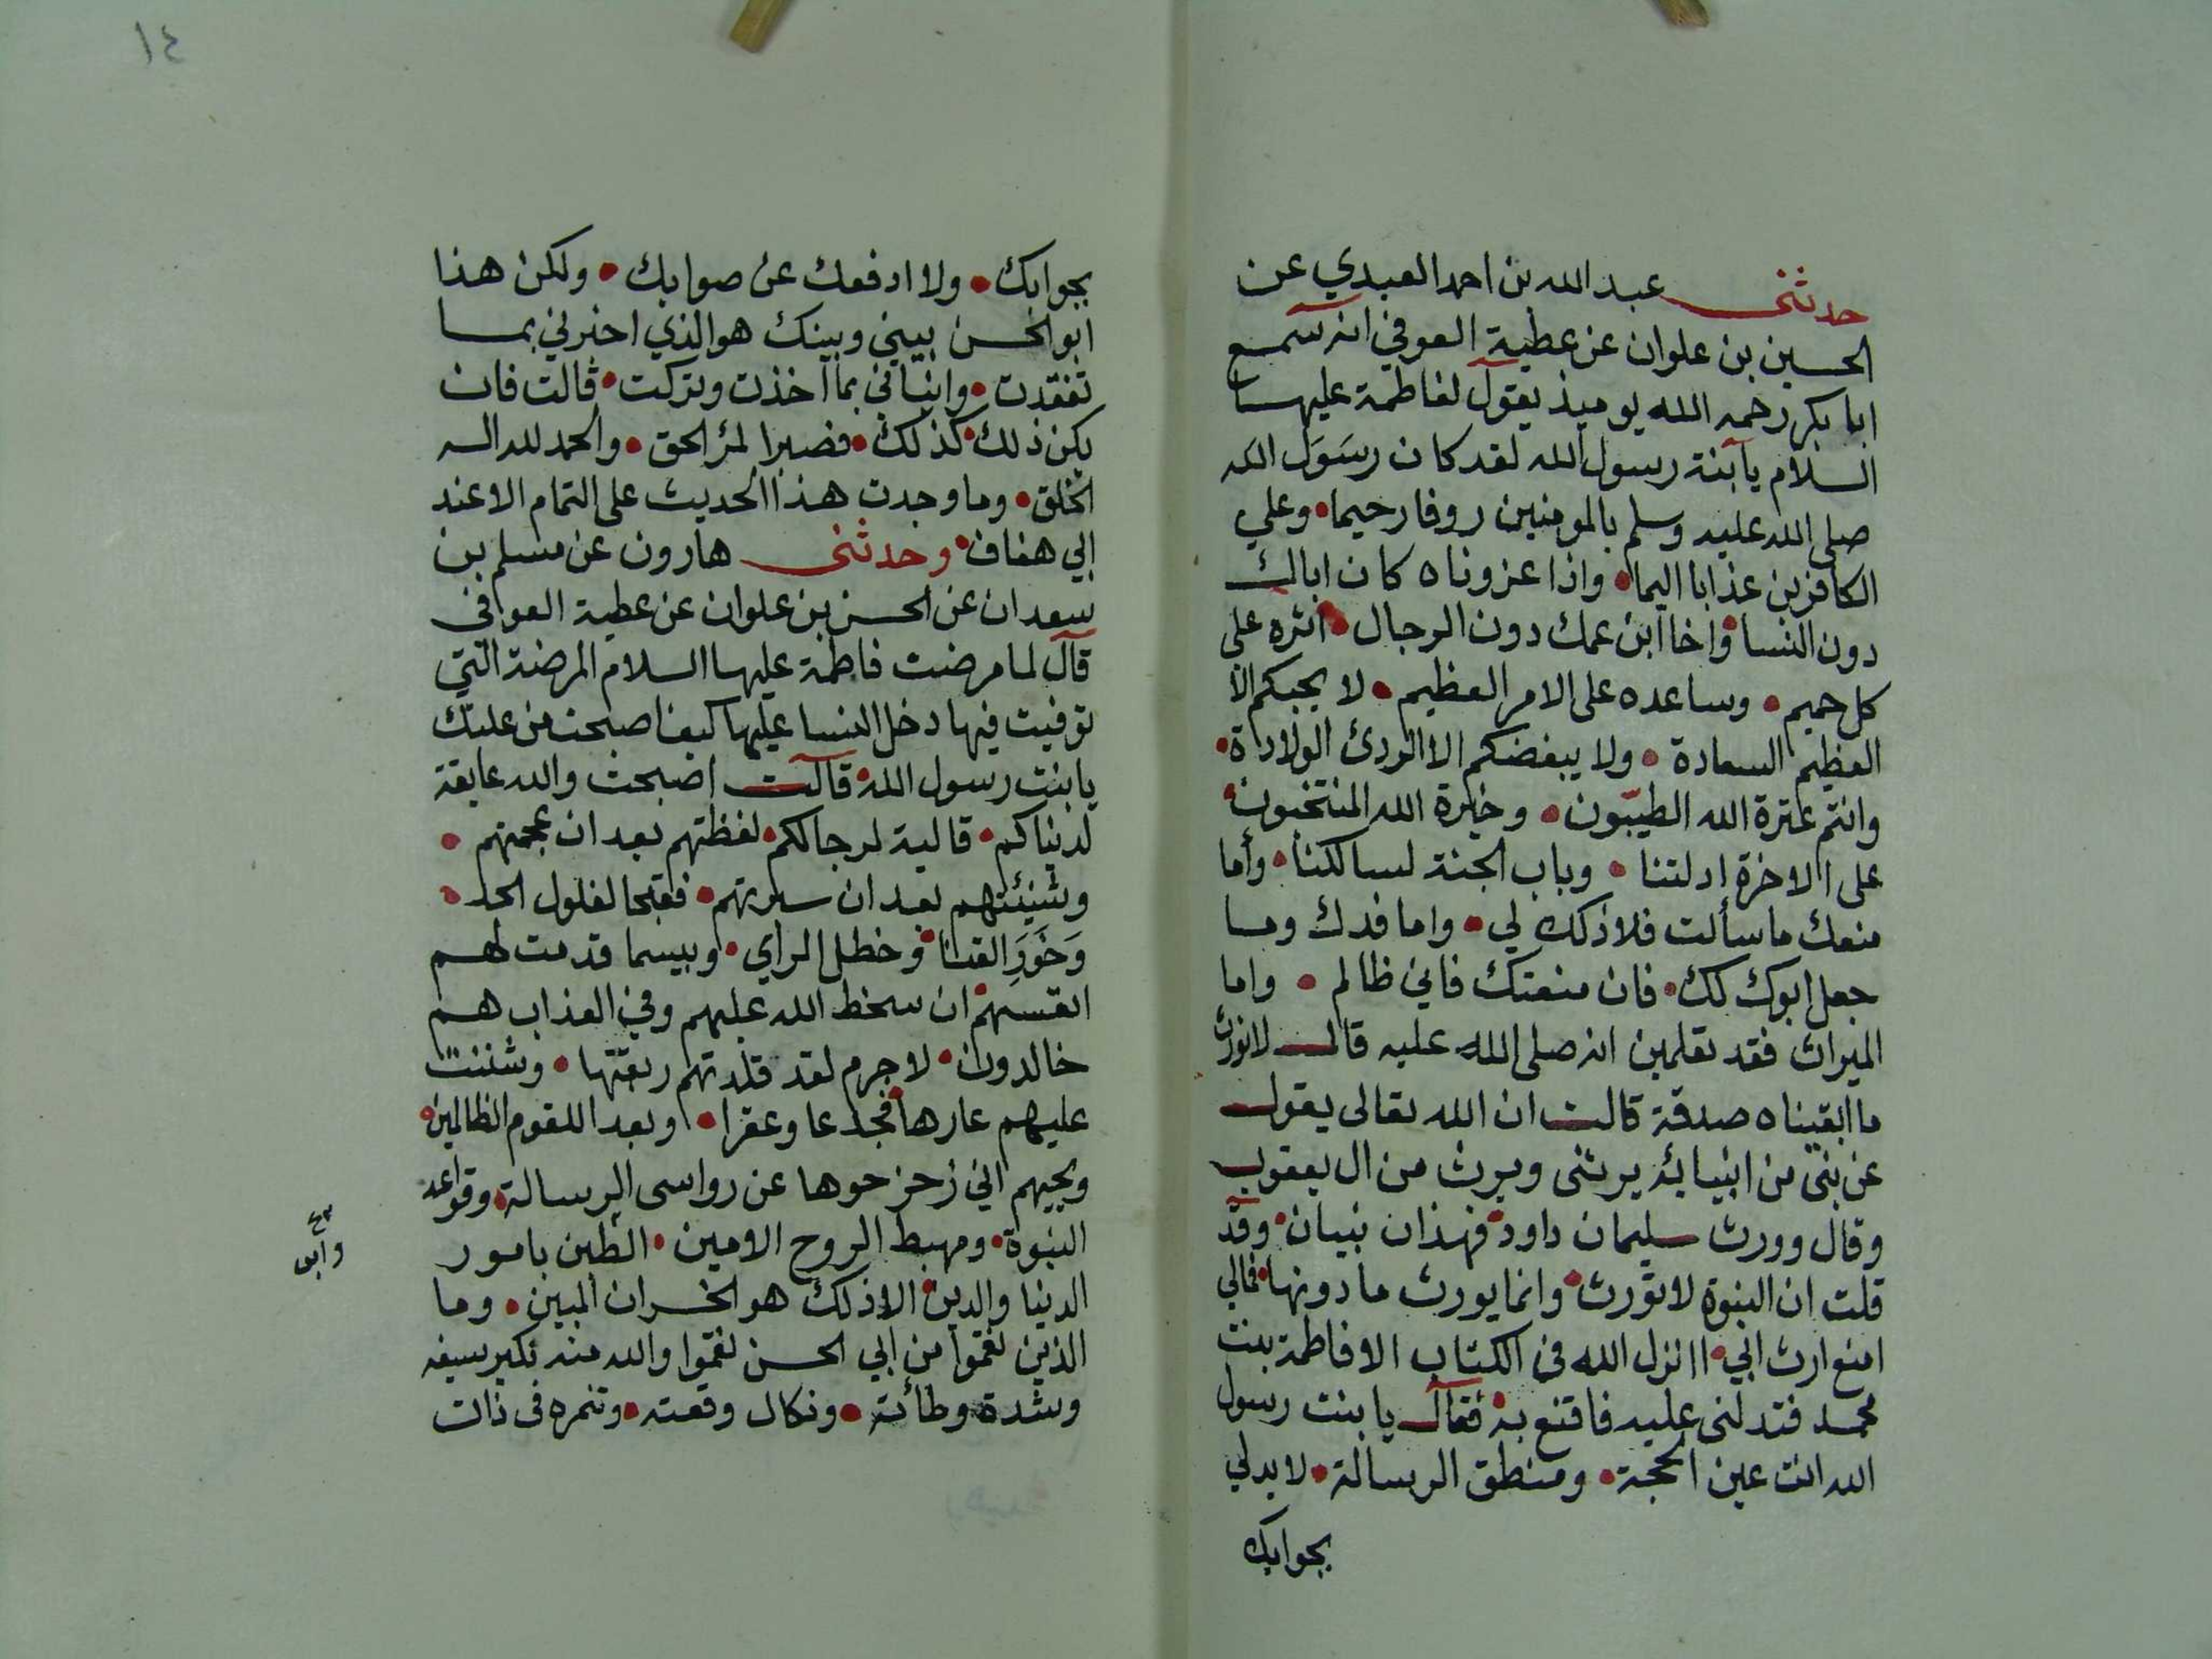 حدثنى عبد الله بن احمد العبدي عن
الحسين بن علوان عن عطية العوفي انه سمع
ابا بكر رحمه الله يوميذ يقول لفاطمة عليها
السلام يا بنة رسول الله لقد كان رسول الله
صلى الله عليه وسلم بالمومنين روفا رحيما • وعلي
الكافرين عذابا اليما • واذا عزوناه كان اباك
دون النسا • واخا ابن عمك دون الرجال • اثره على
كل حميم • وساعده على الامر العظيم • لا يحبكم الا
العظيم السعادة • ولا يبغضكم الا الردئ الولادة •
وانتم عترة الله الطيبون • وخيرة الله المنتخبون •
على الاخرة ادلتنا • وباب الجنة لسالكنا • وأما
منعك ما سألت فلا ذلك لي • واما فدك وما
جعل ابوك لك • فان منعتك فاني ظالم • واما
الميراث فقد تعلمين انه صلى الله عليه قال لا نورث
ما ابقيناه صدقة قالت ان الله تعالى يقول
عن نبى من انبيائه يرثنى ويرث من ال يعقوب
وقال وورث سليمان داود • فهذان نبيان • وقد
قلت ان النبوة لا تورث • وانما يورث ما دونها • فمالي
امنع ارث ابي • اانزل الله فى الكتاب الا فاطمة بنت
محمد فتدلنى عليه فاقنع به • فقال يا بنت رسول
الله انت عين الحجة • ومنطق الرسالة • لا يدلي
بجوابك
١٤
بجوابك • ولا ادفعك عن صوابك • ولكن هذا
ابو الحسن بيني وبينك هو الذي اخبرني بما
تفقدت • وانباني بما اخذت وتركت • قالت فان
يكن ذلك كذلك • فصبرا لمر الحق • والحمد لله اله
الخلق • وما وجدت هذا الحديث على التمام الا عند
ابي هفان • وحدثنى هارون عن مسلم بن
سعدان عن الحسن بن علوان عن عطية العوافى
قال لما مرضت فاطمة عليها السلام المرضة التي
توفيت فيها دخل النسا عليها كيف اصبحت من علتك
يا بنت رسول الله • قالت اصبحت والله عايفة
لدنياكم • قالية لرجالكم • لفظتهم بعد ان عجمتهم •
وشنئتهم بعد ان سبرتهم • فقبحا لفلول الحد •
وخور القنا • وخطل الراي • وبيسما قدمت لهم
انفسهم • ان سخط الله عليهم وفي العذاب هم
خالدون • لا جرم لقد قلدتهم ربقتها • وشننت
عليهم عارها • فجدعا وعقرا • وبعدا للقوم الظالمين •
ويحيهم اني زحزحوها عن رواسى الرسالة • وقواعد
النبوة • ومهبط الروح الامين • الطبن بامور
الدنيا والدين • الا ذلك هو الخسران المبين • وما
الذين نقموا من ابي الحسن نقموا والله منه نكير سيفه
وشدة وطأته • ونكال وقعته • وتنمره فى ذات